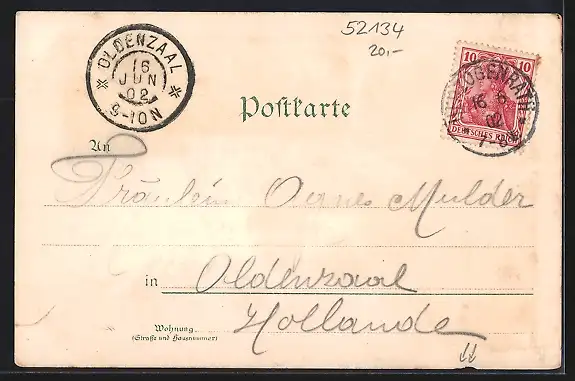 52134
20.-
OLDENZAAL
16
JUN
02
9-10N
10 10
DEUTSCHES REICH
16 6
02
Postkarte
An
Fräulein Mulder
in Oldenzaal
Hollande
Wohnung
(Straße und Hausnummer)